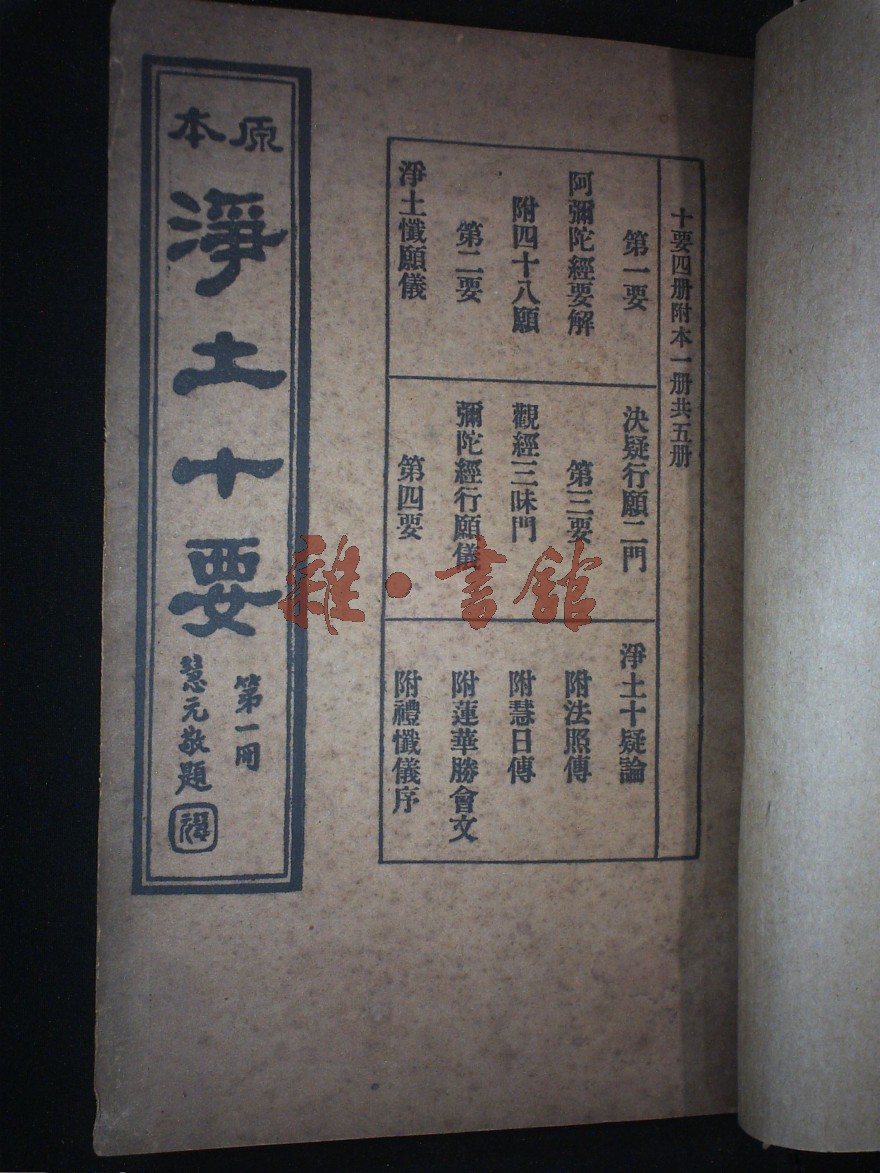 十要四册附本一册共五册
第一要
阿彌陀經要解
附四十八願
第二要
淨土懺願儀
決疑行願二門
第三要
觀經三昧門
彌陀經行願儀
第四要
淨土十疑論
附法照傳
附慧日傳
附蓮華勝會文
附禮懺儀序
原本
淨土十要
第一冊
慧元敬題
雜·書館